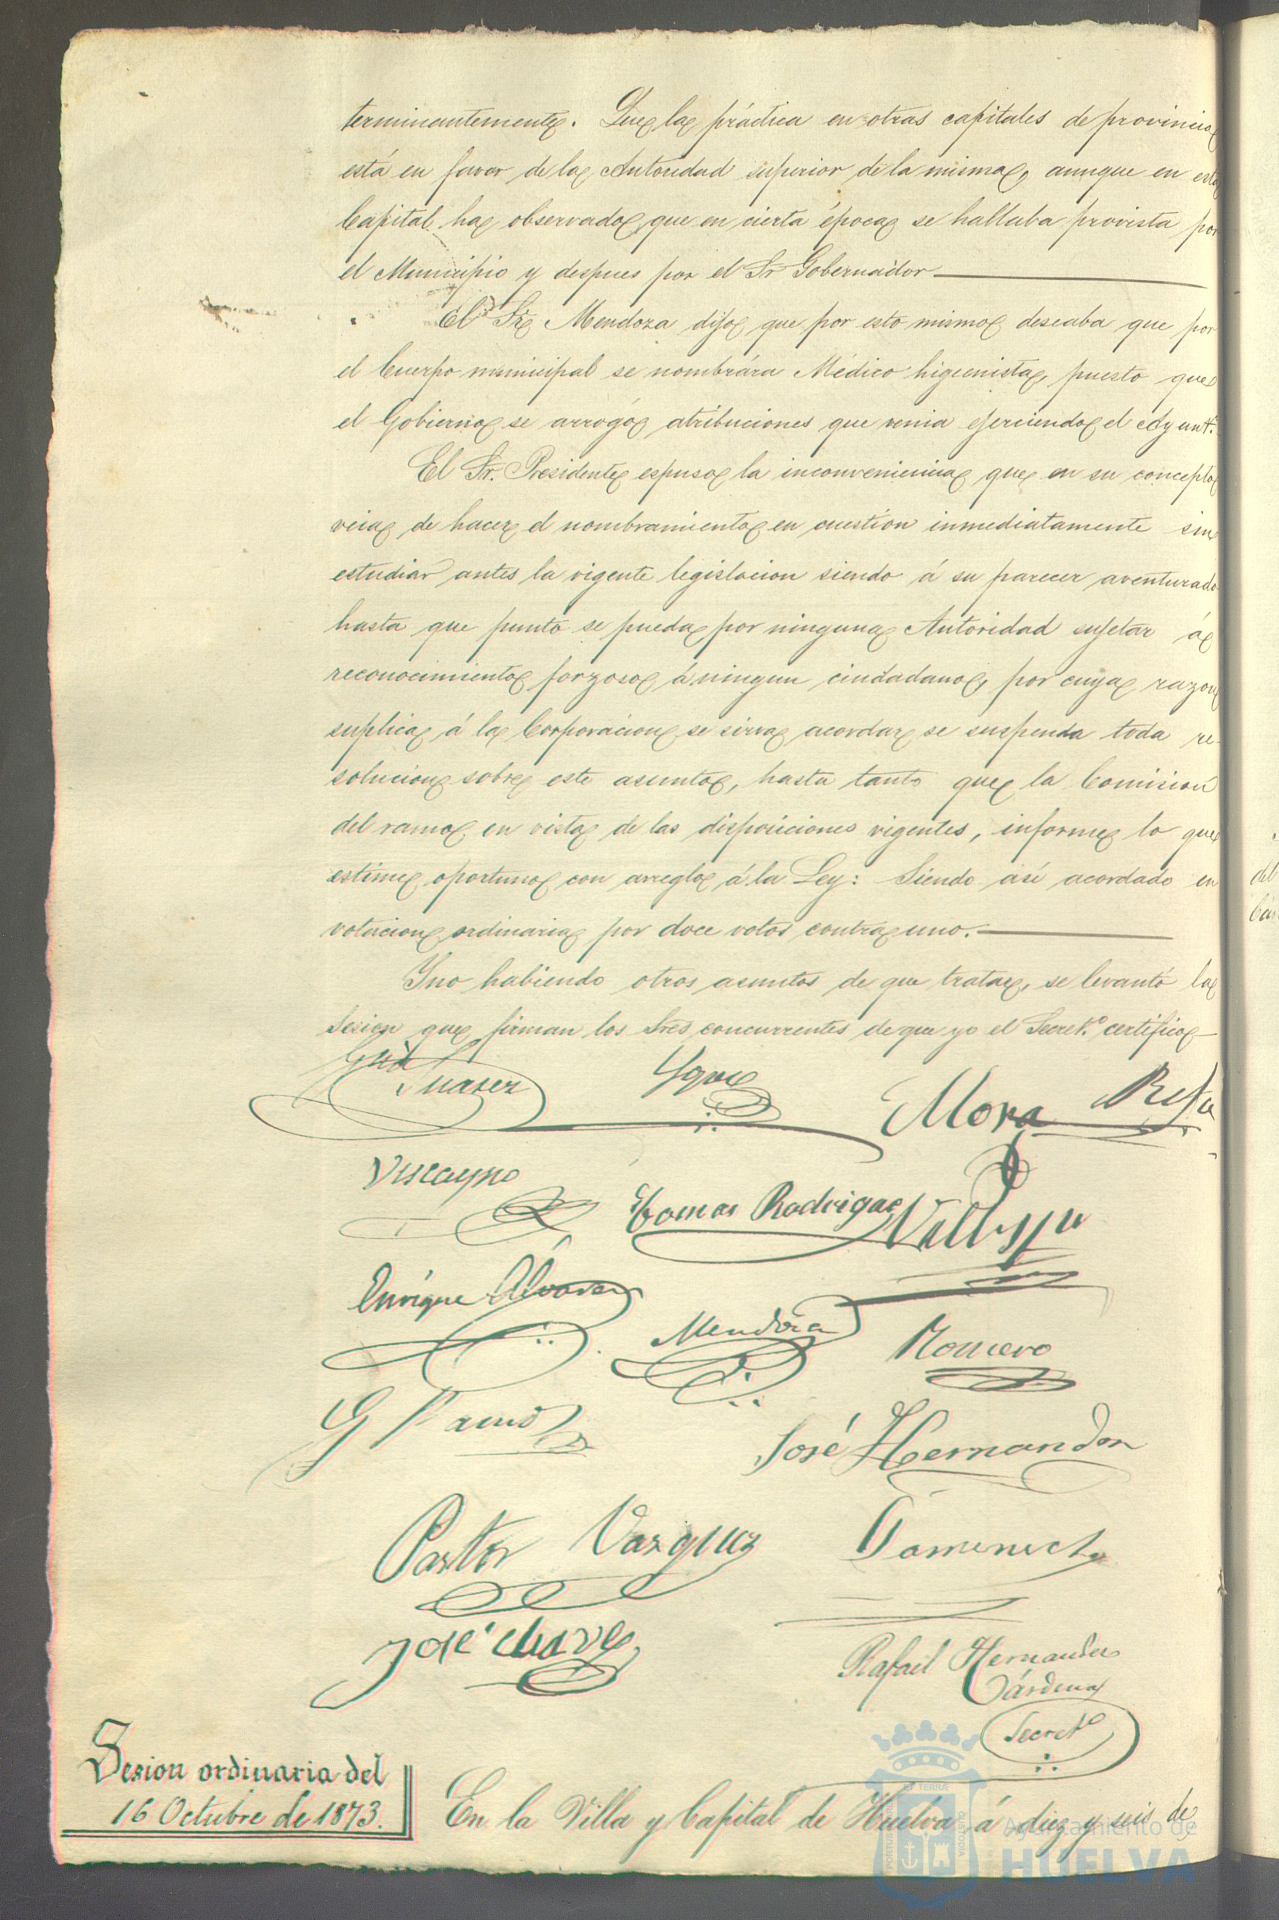 terminantemente. Que la práctica en otras capitales de provincia
está en favor de la Autoridad superior de la misma, aunque en esta
Capital ha observado, que en cierta época se hallaba provista por
el Municipio y despues por el Sr Gobernador
El Sr Mendoza dijo que por esto mismo deseaba que por
el Cuerpo municipal se nombrára Médico higienista, puesto que
el Gobierno se arrogó atribuciones que venia ejerciendo el Ayunt.
El Sr. Presidente espuso la inconveniencia que en su concepto
veia de hacer el nombramiento en cuestion inmediatamente sin
estudiar antes la vigente legislacion siendo á su parecer aventurado
hasta que punto se pueda por ninguna Autoridad sujetar á
reconocimiento forzoso á ningun ciudadano, por cuya razon
suplica á la Corporacion se sirva acordar se suspenda toda re-
solucion sobre este asunto, hasta tanto que la Comision
del ramo en vista de las disposiciones vigentes, informe lo que
estime oportuno con arreglo á la Ley: Siendo asi acordado en
votacion ordinaria por doce votos contra uno.
Y no habiendo otros asuntos de que tratar, se levantó la
sesion que firman los Sres concurrentes de que yo el Secret.º certifico
Suarez
Mora
Viscayno
Tomas Rodriguez
Enrique Alvarez
Mendoza
Romero
José Hernandez
Pastor Vazquez
Domenech
José Chaves
Rafael Hernandez
Cárdenas
Secretº
Sesion ordinaria del
16 Octubre de 1873.
En la Villa y Capital de Huelva á diez y seis de
Ayuntamiento de
HUELVA